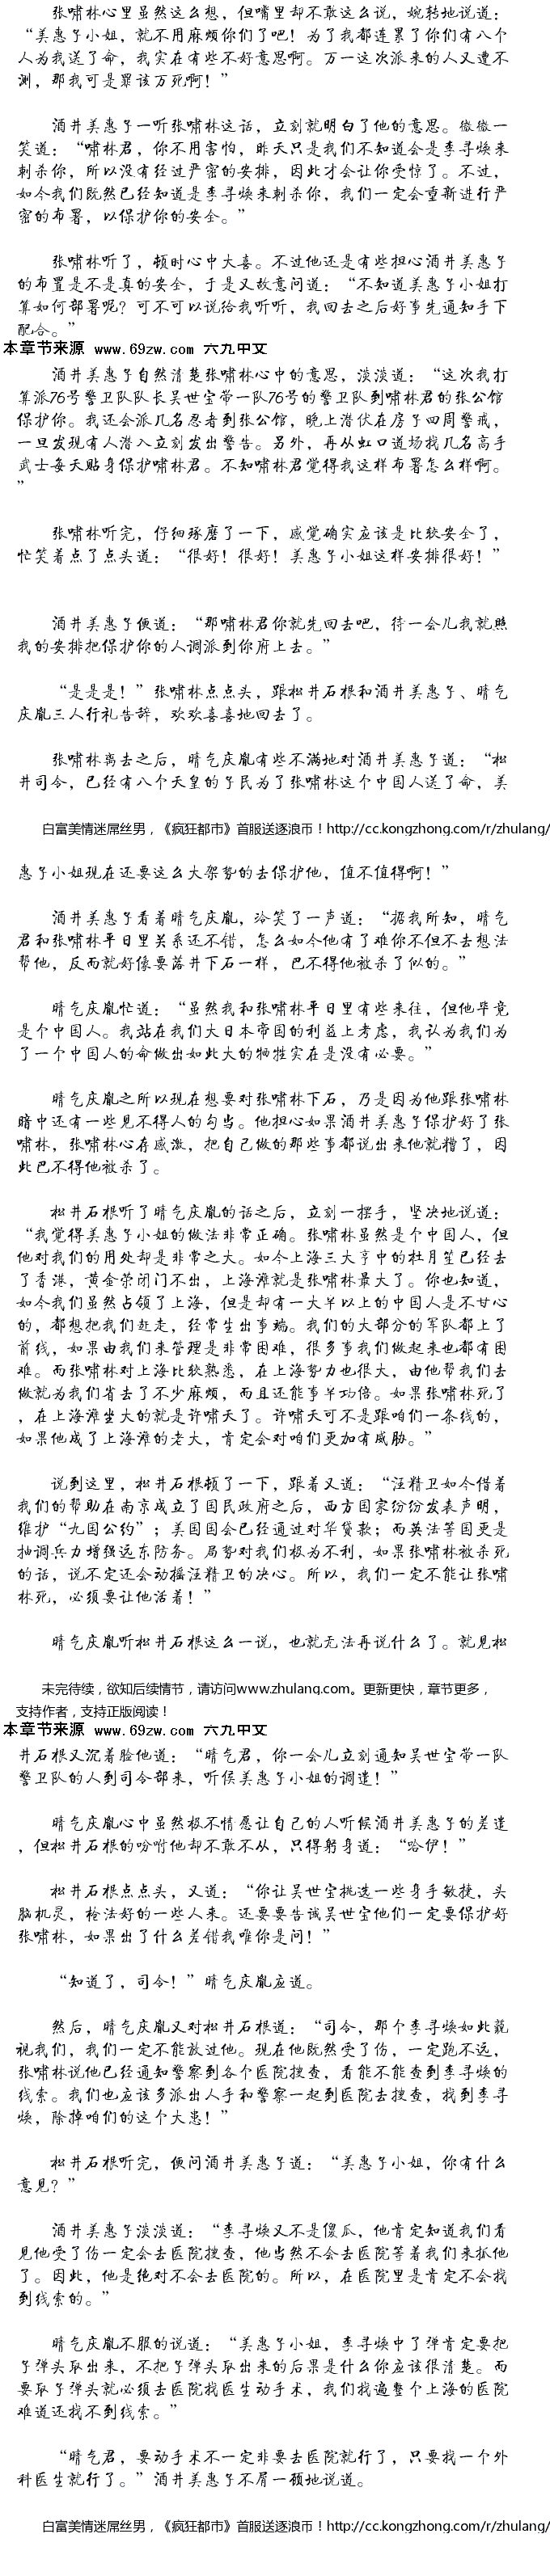 张啸林心里虽然这么想，但嘴里却不敢这么说，婉转地说道：
“美惠子小姐，就不用麻烦你们了吧！为了我都连累了你们有八个
人为我送了命，我实在有些不好意思啊。万一这次派来的人又遭不
测，那我可是罪该万死啊！”
酒井美惠子一听张啸林这话，立刻就明白了他的意思。微微一
笑道：“啸林君，你不用害怕，昨天只是我们不知道会是李寻焕来
刺杀你，所以没有经过严密的安排，因此才会让你受惊了。不过，
如今我们既然已经知道是李寻焕来刺杀你，我们一定会重新进行严
密的布署，以保护你的安全。”
张啸林听了，顿时心中大喜。不过他还是有些担心酒井美惠子
的布置是不是真的安全，于是又故意问道：“不知道美惠子小姐打
算如何部署呢？可不可以说给我听听，我回去之后好事先通知手下
配合。”
本章节来源 www.69zw.com 六九中文
酒井美惠子自然清楚张啸林心中的意思，淡淡道：“这次我打
算派76号警卫队队长吴世宝带一队76号的警卫队到啸林君的张公馆
保护你。我还会派几名忍者到张公馆，晚上潜伏在房子四周警戒，
一旦发现有人潜入立刻发出警告。另外，再从虹口道场找几名高手
武士每天贴身保护啸林君。不知啸林君觉得我这样布署怎么样啊。
”
张啸林听完，仔细琢磨了一下，感觉确实应该是比较安全了，
忙笑着点了点头道：“很好！很好！美惠子小姐这样安排很好！”
酒井美惠子便道：“那啸林君你就先回去吧，待一会儿我就照
我的安排把保护你的人调派到你府上去。”
“是是是！”张啸林点点头，跟松井石根和酒井美惠子、晴气
庆胤三人行礼告辞，欢欢喜喜地回去了。
张啸林离去之后，晴气庆胤有些不满地对酒井美惠子道：“松
井司令，已经有八个天皇的子民为了张啸林这个中国人送了命，美
白富美情迷屌丝男，《疯狂都市》首服送逐浪币！http://cc.kongzhong.com/r/zhulang/
惠子小姐现在还要这么大架势的去保护他，值不值得啊！”
酒井美惠子看着晴气庆胤，冷笑了一声道：“据我所知，晴气
君和张啸林平日里关系还不错，怎么如今他有了难你不但不去想法
帮他，反而就好像要落井下石一样，巴不得他被杀了似的。”
晴气庆胤忙道：“虽然我和张啸林平日里有些来往，但他毕竟
是个中国人。我站在我们大日本帝国的利益上考虑，我认为我们为
了一个中国人的命做出如此大的牺牲实在是没有必要。”
晴气庆胤之所以现在想要对张啸林下石，乃是因为他跟张啸林
暗中还有一些见不得人的勾当。他担心如果酒井美惠子保护好了张
啸林，张啸林心存感激，把自己做的那些事都说出来他就糟了，因
此巴不得他被杀了。
松井石根听了晴气庆胤的话之后，立刻一摆手，坚决地说道：
“我觉得美惠子小姐的做法非常正确。张啸林虽然是个中国人，但
他对我们的用处却是非常之大。如今上海三大亨中的杜月笙已经去
了香港，黄金荣闭门不出，上海滩就是张啸林最大了。你也知道，
如今我们虽然占领了上海，但是却有一大半以上的中国人是不甘心
的，都想把我们赶走，经常生出事端。我们的大部分的军队都上了
前线，如果由我们来管理是非常困难，很多事我们做起来也都有困
难。而张啸林对上海比较熟悉，在上海势力也很大，由他帮我们去
做就为我们省去了不少麻烦，而且还能事半功倍。如果张啸林死了
，在上海滩坐大的就是许啸天了。许啸天可不是跟咱们一条线的，
如果他成了上海滩的老大，肯定会对咱们更加有威胁。”
说到这里，松井石根顿了一下，跟着又道：“汪精卫如今借着
我们的帮助在南京成立了国民政府之后，西方国家纷纷发表声明，
维护“九国公约”；美国国会已经通过对华贷款；而英法等国更是
抽调兵力增强远东防务。局势对我们极为不利，如果张啸林被杀死
的话，说不定还会动摇汪精卫的决心。所以，我们一定不能让张啸
林死，必须要让他活着！”
晴气庆胤听松井石根这么一说，也就无法再说什么了。就见松
未完待续，欲知后续情节，请访问www.zhulang.com。更新更快，章节更多，
支持作者，支持正版阅读！
本章节来源 www.69zw.com 六九中文
井石根又沉着脸他道：“晴气君，你一会儿立刻通知吴世宝带一队
警卫队的人到司令部来，听侯美惠子小姐的调遣！”
晴气庆胤心中虽然极不情愿让自己的人听候酒井美惠子的差遣
，但松井石根的吩咐他却不敢不从，只得躬身道：“哈伊！”
松井石根点点头，又道：“你让吴世宝挑选一些身手敏捷，头
脑机灵，枪法好的一些人来。还要要告诫吴世宝他们一定要保护好
张啸林，如果出了什么差错我唯你是问！”
“知道了，司令！”晴气庆胤应道。
然后，晴气庆胤又对松井石根道：“司令，那个李寻焕如此藐
视我们，我们一定不能放过他。现在他既然受了伤，一定跑不远，
张啸林说他已经通知警察到各个医院搜查，看能不能查到李寻焕的
线索。我们也应该多派出人手和警察一起到医院去搜查，找到李寻
焕，除掉咱们的这个大患！”
松井石根听完，便问酒井美惠子道：“美惠子小姐，你有什么
意见？”
酒井美惠子淡淡道：“李寻焕又不是傻瓜，他肯定知道我们看
见他受了伤一定会去医院搜查，他当然不会去医院等着我们来抓他
了。因此，他是绝对不会去医院的。所以，在医院里是肯定不会找
到线索的。”
晴气庆胤不服的说道：“美惠子小姐，李寻焕中了弹肯定要把
子弹头取出来，不把子弹头取出来的后果是什么你应该很清楚。而
要取子弹头就必须去医院找医生动手术，我们找遍整个上海的医院
难道还找不到线索。”
“晴气君，要动手术不一定非要去医院就行了，只要找一个外
科医生就行了。”酒井美惠子不屑一顾地说道。
白富美情迷屌丝男，《疯狂都市》首服送逐浪币！http://cc.kongzhong.com/r/zhulang/